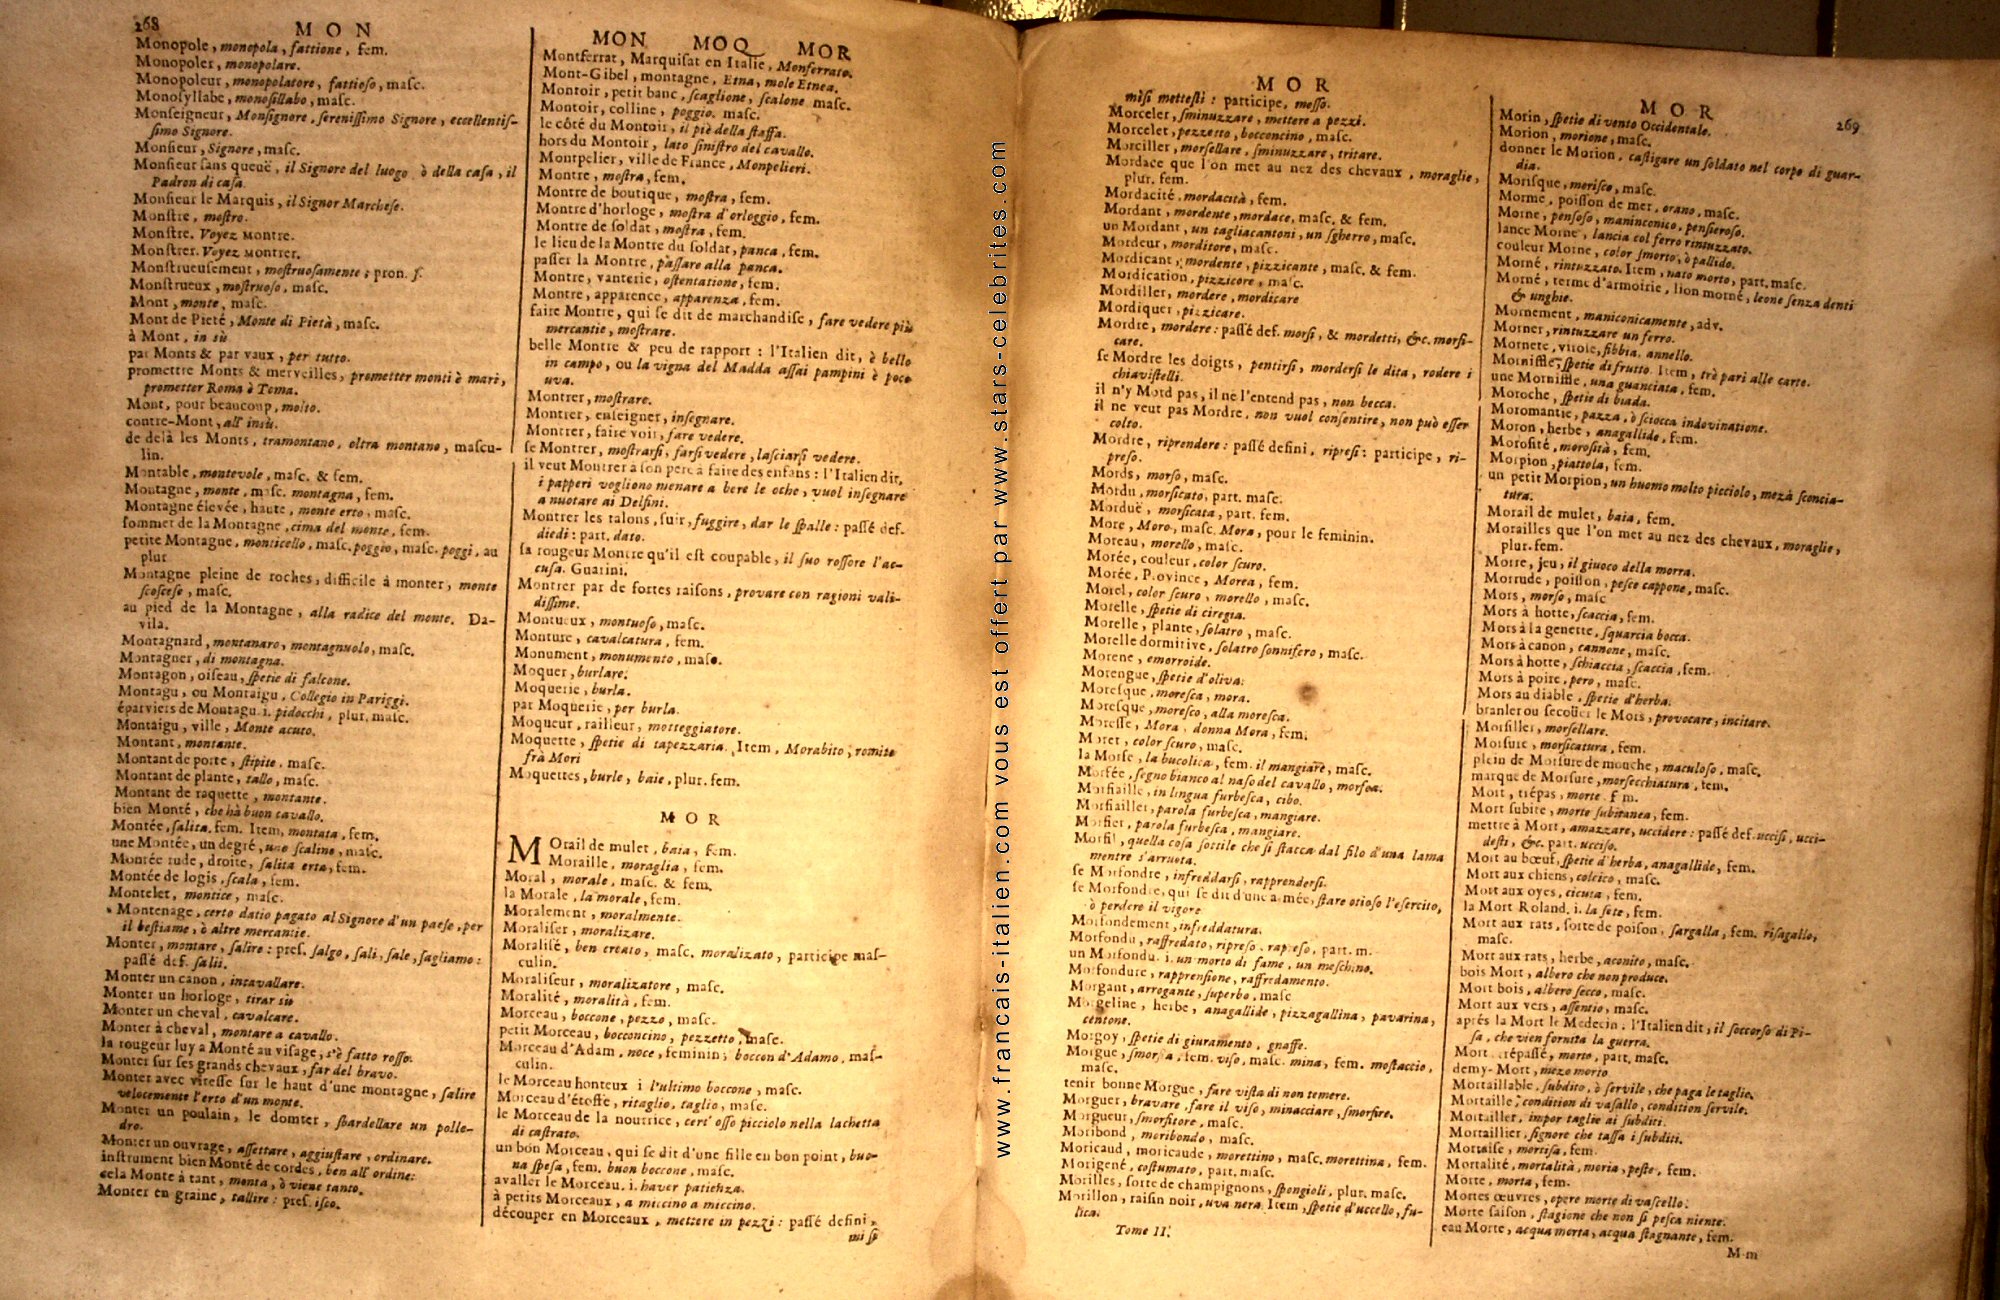 268
MON
Monopole, monopola, fattione, fem.
Monopoler, monopolare.
Monopoleur, monopolatore, fattioso, masc.
Monosyllabe, monosillabo, masc.
Monseigneur, Monsignore, serenissimo Signore, eccellentis-
simo Signore.
Monsieur, Signore, masc.
Monsieur sans queuë, il Signore del luogo ò della casa, il
Padron di casa.
Monsieur le Marquis, il Signor Marchese.
Monstre, mostro.
Monstre. Voyez Montre.
Monstrer. Voyez Montrer.
Monstrueusement, mostruosamente; pron. s.
Monstrueux, mostruoso, masc.
Mont, monte, masc.
Mont de Pieté, Monte di Pietà, masc.
à Mont, in sù
par Monts & par vaux, per tutto.
promettre Monts & merveilles, prometter monti è mari,
prometter Roma è Toma.
Mont, pour beaucoup, molto.
contre-Mont, all' insù.
de delà les Monts, tramontano, oltra montano, mascu-
lin.
Montable, montevole, masc. & fem.
Montagne, monte, masc. montagna, fem.
Montagne élevée, haute, monte erto, masc.
sommet de la Montagne, cima del monte, fem.
petite Montagne, monticello, masc. poggio, masc. poggi, au
plur
Montagne pleine de roches, difficile à monter, monte
scoscese, masc.
au pied de la Montagne, alla radice del monte. Da-
vila.
Montagnard, montanaro, montagnuolo, masc.
Montagner, di montagna.
Montagon, oiseau, spetie di falcone.
Montagu, ou Montaigu, Collegio in Pariggi.
éparviers de Montagu. i. pidocchi, plur. masc.
Montaigu, ville, Monte acuto.
Montant, montante.
Montant de porte, stipite, masc.
Montant de plante, tallo, masc.
Montant de raquette, montante.
bien Monté, che hà buon cavallo.
Montée, salita, fem. Item, montata, fem.
une Montée, un degré, uno scalino, masc.
Montée rude, droite, salita erta, fem.
Montée de logis, scala, fem.
Montelet, montice, masc.
Montenage, certo datio pagato al Signore d'un paese, per
il bestiame, ò altre mercantie.
Monter, montare, salire: pres. salgo, sali, sale, sagliamo:
passé def. salii.
Monter un canon, incavallare.
Monter un horloge, tirar sù
Monter un cheval, cavalcare.
Monter à cheval, montare a cavallo.
la rougeur luy a Monté au visage, s'è fatto rosso.
Monter sur ses grands chevaux, far del bravo.
Monter avec vitesse sur le haut d'une montagne, salire
velocemente l'erto d'un monte.
Monter un poulain, le domter, sbardellare un polle-
dro.
Monter un ouvrage, assettare, aggiustare, ordinare.
instrument bien Monté de cordes, ben all' ordine:
cela Monte à tant, monta, ò viene tanto.
Monter en graine, tallire: pres. isco.
MON MOQ MOR
Montferrat, Marquisat en Italie, Monferrato.
Mont-Gibel, montagne, Etna, mole Etnea.
Montoir, petit banc, scaglione, scalone masc.
Montoir, colline, poggio, masc.
le côté du Montoir, il piè della staffa.
hors du Montoir, lato sinistro del cavallo.
Montpelier, ville de France, Monpelieri.
Montre, mostra, fem.
Montre de boutique, mostra, fem.
Montre d'horloge, mostra d'orloggio, fem.
Montre de soldat, mostra, fem.
le lieu de la Montre du soldat, panca, fem.
passer la Montre, passare alla panca.
Montre, vanterie, ostentatione, fem.
Montre, apparence, apparenza, fem.
faire Montre, qui se dit de marchandise, fare vedere più
mercantie, mostrare.
belle Montre & peu de rapport: l'Italien dit, è bello
in campo, ou la vigna del Madda assai pampini è poco
uva.
Montrer, mostrare.
Montrer, enseigner, insegnare.
Montrer, faire voir, fare vedere.
se Montrer, mostrarsi, farsi vedere, lasciarsi vedere.
il veut Montrer à son pere à faire des enfans: l'Italien dit,
i papperi vogliono menare a bere le oche, vuol insegnare
a nuotare ai Delfini.
Montrer les talons, fuir, fuggire, dar le spalle: passé def.
diedi: part. dato.
sa rougeur Montre qu'il est coupable, il suo rossore l'ac-
cusa. Guarini.
Montrer par de fortes raisons, provare con ragioni vali-
dissime.
Montueux, montuoso, masc.
Monture, cavalcatura, fem.
Monument, monumento, masc.
Moquer, burlare.
Moquerie, burla.
par Moquerie, per burla.
Moqueur, railleur, motteggiatore.
Moquette, spetie di tapezzaria. Item, Morabito, romito
frà Mori
Moquettes, burle, baie, plur. fem.
MOR
Morail de mulet, baia, fem.
Moraille, moraglia, fem.
Moral, morale, masc. & fem.
la Morale, la morale, fem.
Moralement, moralmente.
Moraliser, moralizare.
Moralisé, ben creato, masc. moralizato, participe mas-
culin.
Moraliseur, moralizatore, masc.
Moralité, moralità, fem.
Morceau, boccone, pezzo, masc.
petit Morceau, bocconcino, pezzetto, masc.
Morceau d'Adam, noce, feminin; boccon d'Adamo, mas-
culin.
le Morceau honteux i l'ultimo boccone, masc.
Morceau d'étoffe, ritaglio, taglio, masc.
le Morceau de la nourrice, cert' osso picciolo nella lachetta
di castrato.
un bon Morceau, qui se dit d'une fille en bon point, buo-
na spesa, fem. buon boccone, masc.
avaller le Morceau. i. haver patienza.
à petits Morceaux, a miccino a miccino.
découper en Morceaux, mettere in pezzi: passé defini,
mi si
www.francais-italien.com vous est offert par www.stars-celebrites.com
MOR
misi mettesti: participe, messo.
Morceler, sminuzzare, mettere a pezzi.
Morcelet, pezzetto, bocconcino, masc.
Morciller, morsellare, sminuzzare, tritare.
Mordace que l'on met au nez des chevaux, moraglie,
plur. fem.
Mordacité, mordacità, fem.
Mordant, mordente, mordace, masc. & fem.
un Mordant, un tagliacantoni, un sgherro, masc.
Mordeur, morditore, masc.
Mordicant, mordente, pizzicante, masc. & fem.
Mordication, pizzicore, masc.
Mordiller, mordere, mordicare
Mordiquer, pizzicare.
Mordre, mordere: passé def. morsi, & mordetti, &c. morsi-
care.
se Mordre les doigts, pentirsi, mordersi le dita, rodere i
chiavistelli.
il n'y Mord pas, il ne l'entend pas, non becca.
il ne veut pas Mordre, non vuol consentire, non può esser
colto.
Mordre, riprendere: passé defini, ripresi: participe, ri-
preso.
Mords, morso, masc.
Mordu, morsicato, part. masc.
Morduë, morsicata, part. fem.
More, Moro, masc. Mora, pour le feminin.
Moreau, morello, masc.
Morée, couleur, color scuro.
Morée, Province, Morea, fem.
Morel, color scuro, morello, masc.
Morelle, spetie di ciregia.
Morelle, plante, solatro, masc.
Morelle dormitive, solatro sonnifero, masc.
Morene, emorroide.
Morengue, spetie d'oliva.
Moresque, moresca, mora.
Moresque, moresco, alla moresca.
Moresse, Mora, donna Mora, fem.
Moret, color scuro, masc.
la Morse, la bucolica, fem. il mangiare, masc.
Morfée, segno bianco al naso del cavallo, morfea.
Morfiaille, in lingua furbesca, cibo.
Morfiailler, parola furbesca, mangiare.
Morfier, parola furbesca, mangiare.
Morfil, quella cosa sottile che si stacca dal filo d'una lama
mentre s'arruota.
se Morfondre, infreddarsi, rapprendersi.
se Morfondre, qui se dit d'une armée, stare otioso l'esercito,
ò perdere il vigore
Morfondement, infreddatura.
Morfondu, raffredato, ripreso, rapreso, part. m.
un Morfondu. i. un morto di fame, un meschino.
Morfondure, rapprensione, raffredamento.
Morgant, arrogante, superbo, masc
Morgeline, herbe, anagallide, pizzagallina, pavarina,
centone.
Morgoy, spetie di giuramento, gnaffe.
Morgue, smorfia, fem. viso, masc. mina, fem. mostaccio,
masc.
tenir bonne Morgue, fare vista di non temere.
Morguer, bravare, fare il viso, minacciare, smorfire.
Morgueur, smorfitore, masc.
Moribond, moribondo, masc.
Moricaud, moricaude, morettino, masc. morettina, fem.
Morigené, costumato, part. masc.
Morilles, sorte de champignons, spongioli, plur. masc.
Morillon, raisin noir, uva nera. Item, spetie d'uccello, fu-
lica.
Tome II.
MOR
269
Morin, spetie di vento Occidentale.
Morion, morione, masc.
donner le Morion, castigare un soldato nel corpo di guar-
dia.
Morisque, morisco, masc.
Morme, poisson de mer, orano, masc.
Morne, pensoso, maninconico, pensieroso.
lance Morne, lancia col ferro rintuzzato.
couleur Morne, color smorto, ò pallido.
Morné, rintuzzato. Item, nato morto, part. masc.
Morné, terme d'armoirie, lion morné, leone senza denti
& unghie.
Mornement, maniconicamente, adv.
Morner, rintuzzare un ferro.
Mornete, virole, fibbia, annello.
Mornifle, spetie di frutto. Item, trè pari alle carte.
une Mornifle, una guanciata, fem.
Moroche, spetie di biada.
Moromantie, pazza, ò sciocca indovinatione.
Moron, herbe, anagallide, fem.
Morosité, morosità, fem.
Morpion, piattola, fem.
un petit Morpion, un huomo molto picciolo, mezà sconcia-
tura.
Morail de mulet, baia, fem.
Morailles que l'on met au nez des chevaux, moraglie,
plur. fem.
Morre, jeu, il giuoco della morra.
Morrude, poisson, pesce cappone, masc.
Mors, morso, masc
Mors à hotte, scaccia, fem.
Mors à la genette, squarcia bocca.
Mors à canon, cannone, masc.
Mors à hotte, schiaccia, scaccia, fem.
Mors à poire, pero, masc.
Mors au diable, spetie d'herba.
branler ou secoüer le Mors, provocare, incitare.
Morsiller, morsellare.
Morsure, morsicatura, fem.
plein de Morsure de mouche, maculoso, masc.
marque de Morsure, morsecchiatura, fem.
Mort, trépas, morte, fem.
Mort subite, morte subitanea, fem.
mettre à Mort, amazzare, uccidere: passé def. uccisi, ucci-
desti, &c. part. ucciso.
Mort au bœuf, spetie d'herba, anagallide, fem.
Mort aux chiens, colcico, masc.
Mort aux oyes, cicuta, fem.
la Mort Roland. i. la sete, fem.
Mort aux rats, sorte de poison, sargalla, fem. risagallo,
masc.
Mort aux rats, herbe, aconito, masc.
bois Mort, albero che non produce.
Mort bois, albero secco, masc.
Mort aux vers, assentio, masc.
aprés la Mort le Medecin, l'Italien dit, il soccorso di Pi-
sa, che vien fornita la guerra.
Mort trépassé, morto, part. masc.
demy-Mort, mezo morto
Mortaillable, subdito, ò servile, che paga le taglie.
Mortaille, condition di vasallo, condition servile.
Mortailler, impor taglie ai subditi.
Mortaillier, signore che tassa i subditi.
Mortaise, mortisa, fem.
Mortalité, mortalità, moria, peste, fem.
Morte, morta, fem.
Mortes œuvres, opere morte di vascello.
Morte saison, stagione che non si pesca niente.
eau Morte, acqua morta, acqua stagnante, fem.
M m